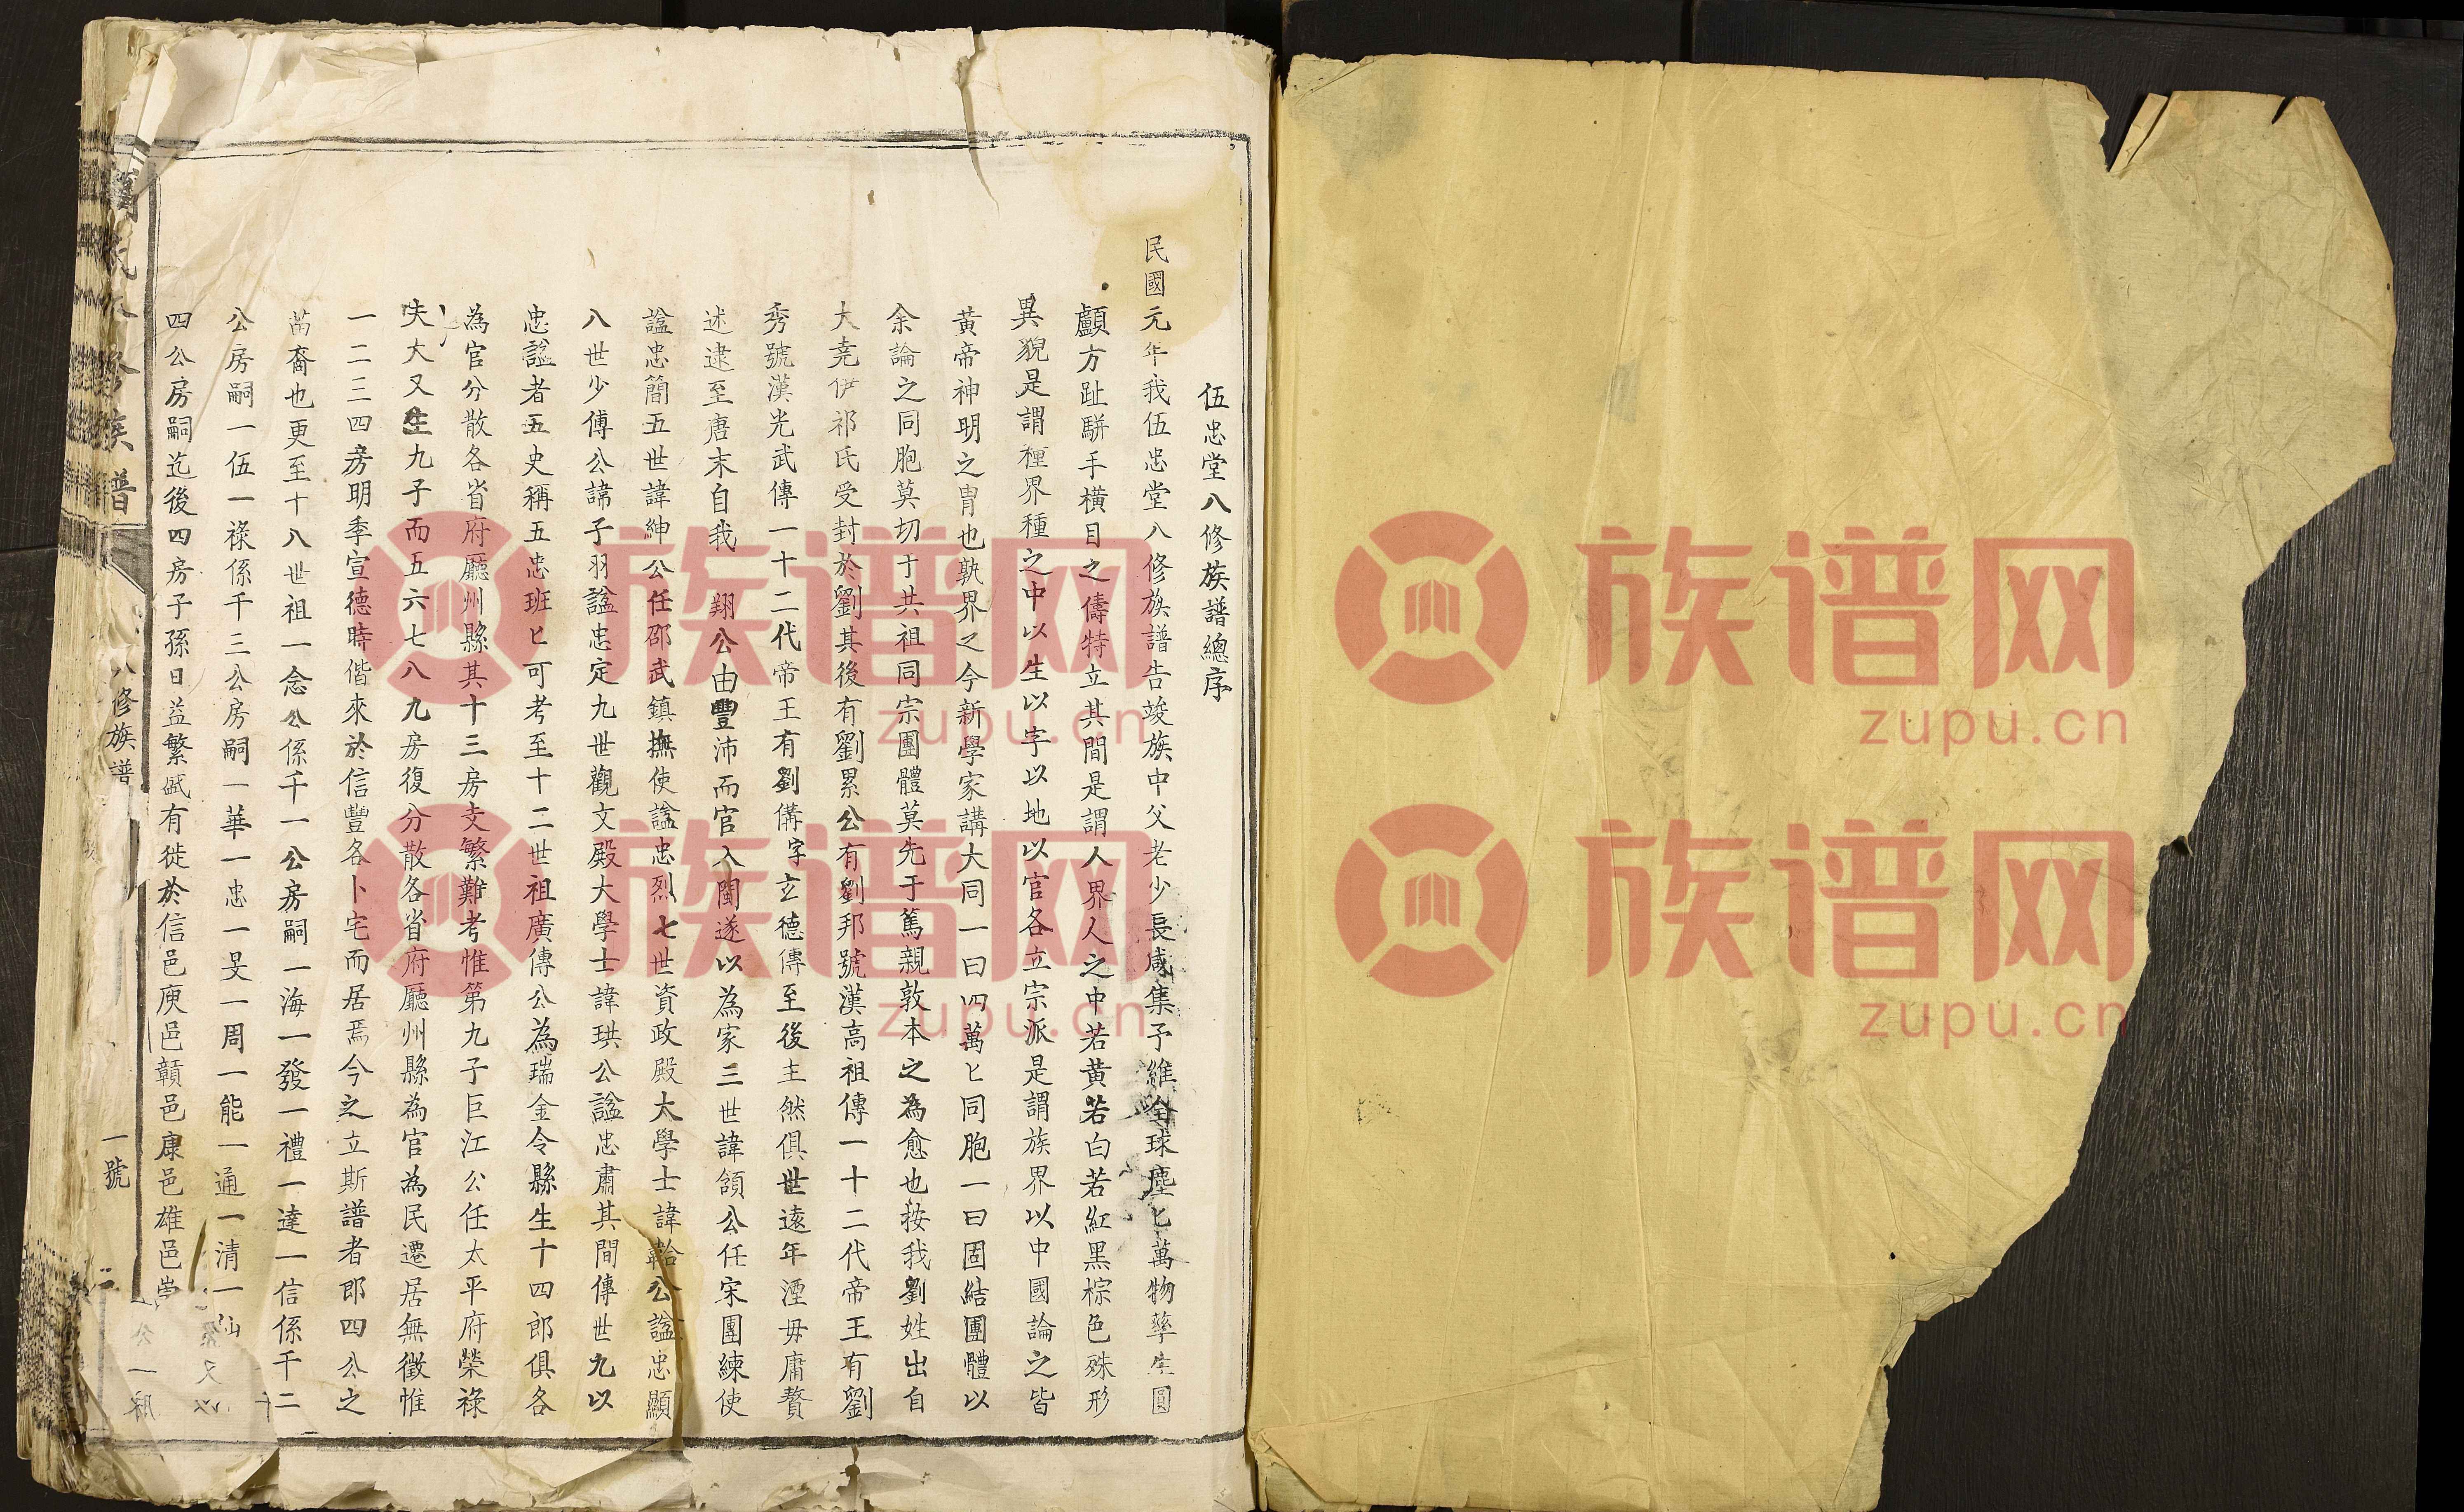 伍忠堂八修族譜總序
民國元年我伍忠堂八修族譜告竣族中父老少長咸集予維全球塵匕萬物孳生圓
顱方趾駢手橫目之儔特立其間是謂人界人之中若黃若白若紅黑棕色殊形
異貌是謂種界種之中以生以字以地以官各立宗派是謂族界以中國論之皆
黃帝神明之胄也孰界之今新學家講大同一曰四萬匕同胞一曰固結團體以
余論之同胞莫切于共祖同宗團體莫先于篤親敦本之為愈也按我劉姓出自
大堯伊祁氏受封於劉其後有劉累公有劉邦號漢高祖傳一十二代帝王有劉
秀號漢光武傳一十二代帝王有劉備字玄德傳至後主然俱世遠年湮毋庸贅
述逮至唐末自我翔公由豐沛而官入閩遂以為家三世諱頜公任宋團練使
諡忠簡五世諱紳公任邵武鎮撫使諡忠烈七世資政殿大學士諱韐公諡忠顯
八世少傅公諱子羽諡忠定九世觀文殿大學士諱珙公諡忠肅其間傳世九以
忠諡者五史稱五忠班匕可考至十二世祖廣傳公為瑞金令縣生十四郎俱各
為官分散各省府廳州縣其十三房支繁難考惟第九子巨江公任太平府榮祿
大夫又生九子而五六七八九房復分散各省府廳州縣為官為民遷居無徵惟
一二三四房明季宣德時偕來於信豐各卜宅而居焉今之立斯譜者即四公之
苗裔也更至十八世祖一念公係千一公房嗣一海一發一禮一達一信係千二
公房嗣一伍一祿係千三公房嗣一華一忠一旻一周一能一通一清一仙
四公房嗣迄後四房子孫日益繁盛有徙於信邑庾邑贛邑康邑雄邑崇
氏 修族譜
八修族譜
一號
族谱网
zupu.cn
族谱网
zupu.cn
族谱网
zupu.cn
族谱网
zupu.cn